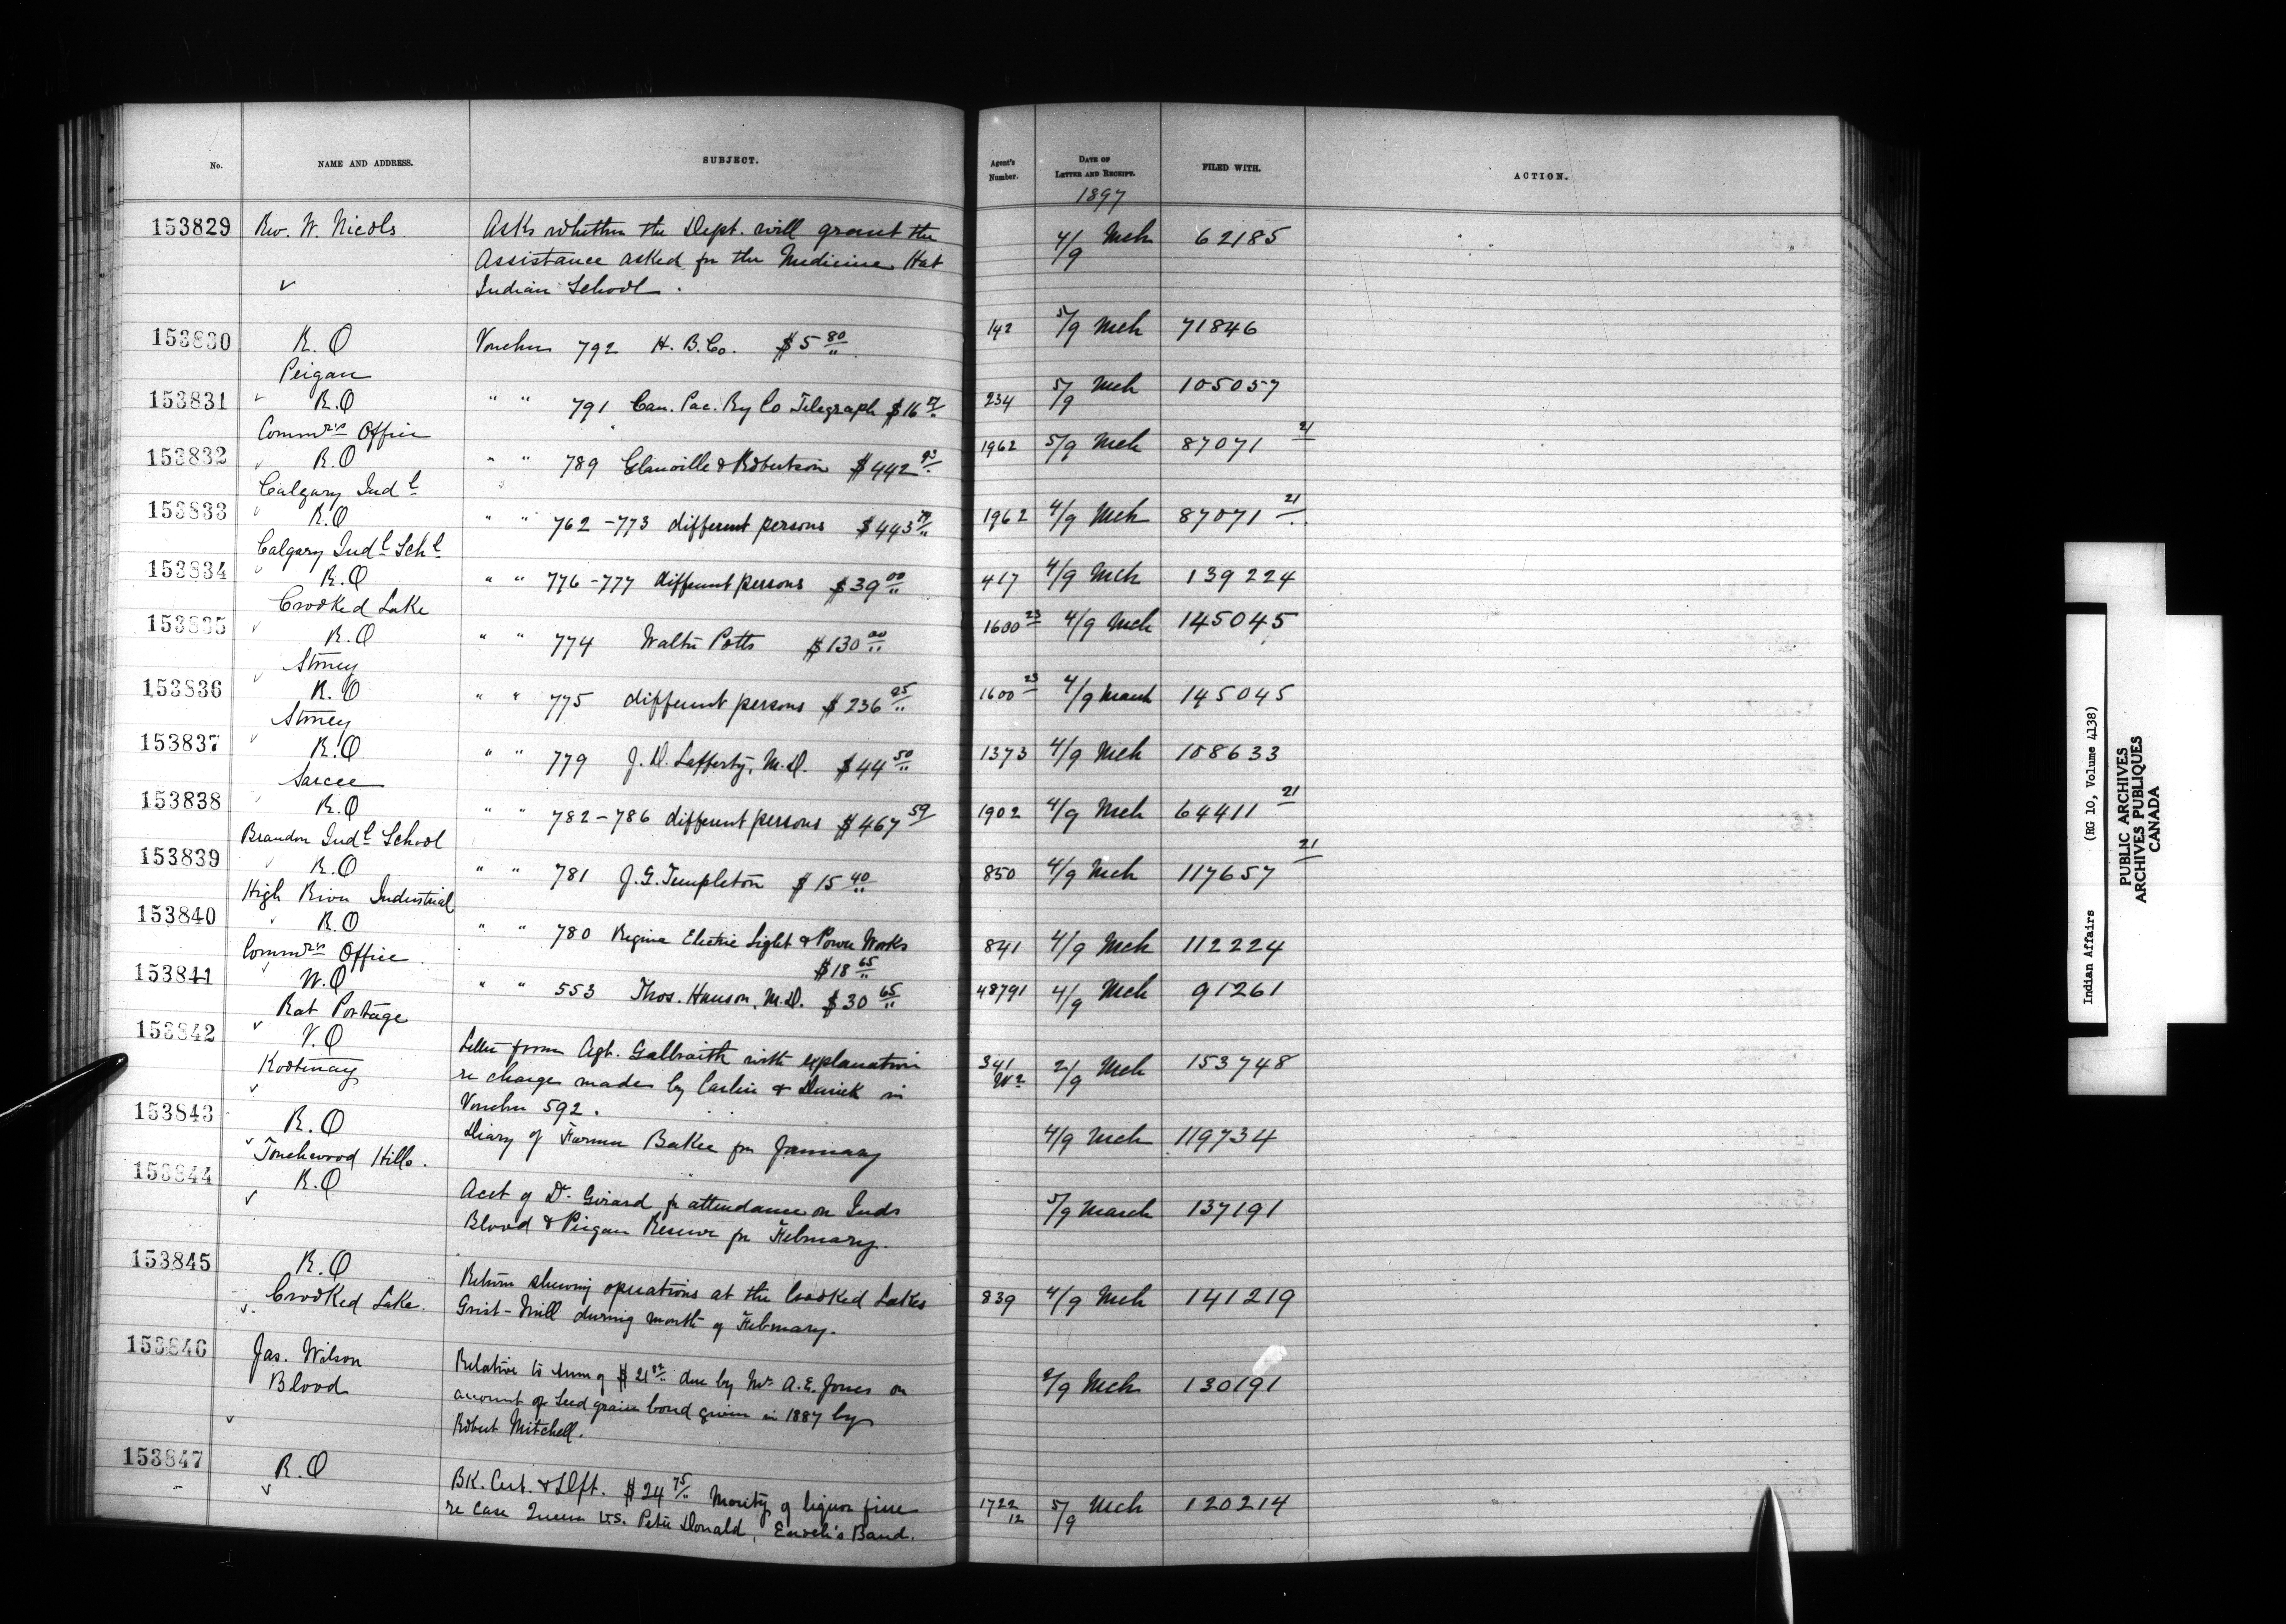 No. NAME AND ADDRESS. SUBJECT. Agent's Number. DATE OF LETTER AND RECEIPT. FILED WITH. ACTION.
1897
153829 Rev. W. Nicols Asks whether the Dept. will grant the 4/9 Mch 62185
Assistance asked for the Medicine Hat
Indian School.
153830 R.O Voucher 792 H. B. Co. $5 80 142 5/9 Mch 71846
Peigan
153831 R.O " " 791 Can. Pac. Ry Co Telegraph $16 234 5/9 Mch 105057
Commrs Office
153832 R.O " " 789 & Robertson $442 1962 5/9 Mch 87071 21
Calgary Indl
153833 R.O " " 762-773 different persons $443 1962 4/9 Mch 87071 21
Calgary Indl Schl
153834 R.O " " 776-777 different persons $39 00 417 4/9 Mch 139224
Crooked Lake
153835 R.O " " 774 Walter Potts $130 00 1600 23 4/9 Mch 145045
Stoney
153836 R.O " " 775 different persons $236 1600 23 4/9 March 145045
Stoney
153837 R.O " " 779 J. D. Lafferty, M.D. $44 50 1373 4/9 Mch 108633
Sarcee
153838 R.O " " 782-786 different persons $467 59 1902 4/9 Mch 64411 21
Brandon Indl School
153839 R.O " " 781 J. G. Templeton $15 40 850 4/9 Mch 117657 21
High River Industrial
153840 R.O " " 780 Regina Electric Light & Power Works 841 4/9 Mch 112224
Commrs Office $18 65
153841 W.O " " 553 Thos. Hanson, M.D. $30 65 48791 4/9 Mch 91261
Rat Portage
153842 V.O Letter from Agt. Galbraith with explanation 341 2/9 Mch 153748
Kootenay re charges made by Carlin & Durick in
Voucher 592.
153843 R.O Diary of Farmer Baker for January 4/9 Mch 119734
Touchwood Hills.
153844 R.O Acct of Dr. Girard for attendance on Inds 5/9 March 137191
Blood & Piegan Reserve for February.
153845 R.O Return shewing operations at the Crooked Lakes 839 4/9 Mch 141219
Crooked Lake. Grist-Mill during month of February.
153846 Jas. Wilson Relative to sum of $21 due by Mr. A. E. Jones on 2/9 Mch 130191
Blood account of Seed grain bond given in 1887 by
Robert Mitchell.
153847 R.O BK. Cert. & Dft. $24 75 Moiety of liquor fine 1722 12 5/9 Mch 120214
re case Queen vs. Peter Donald, Enoch's Band.
Indian Affairs (RG 10, Volume 4138)
PUBLIC ARCHIVES
ARCHIVES PUBLIQUES
CANADA